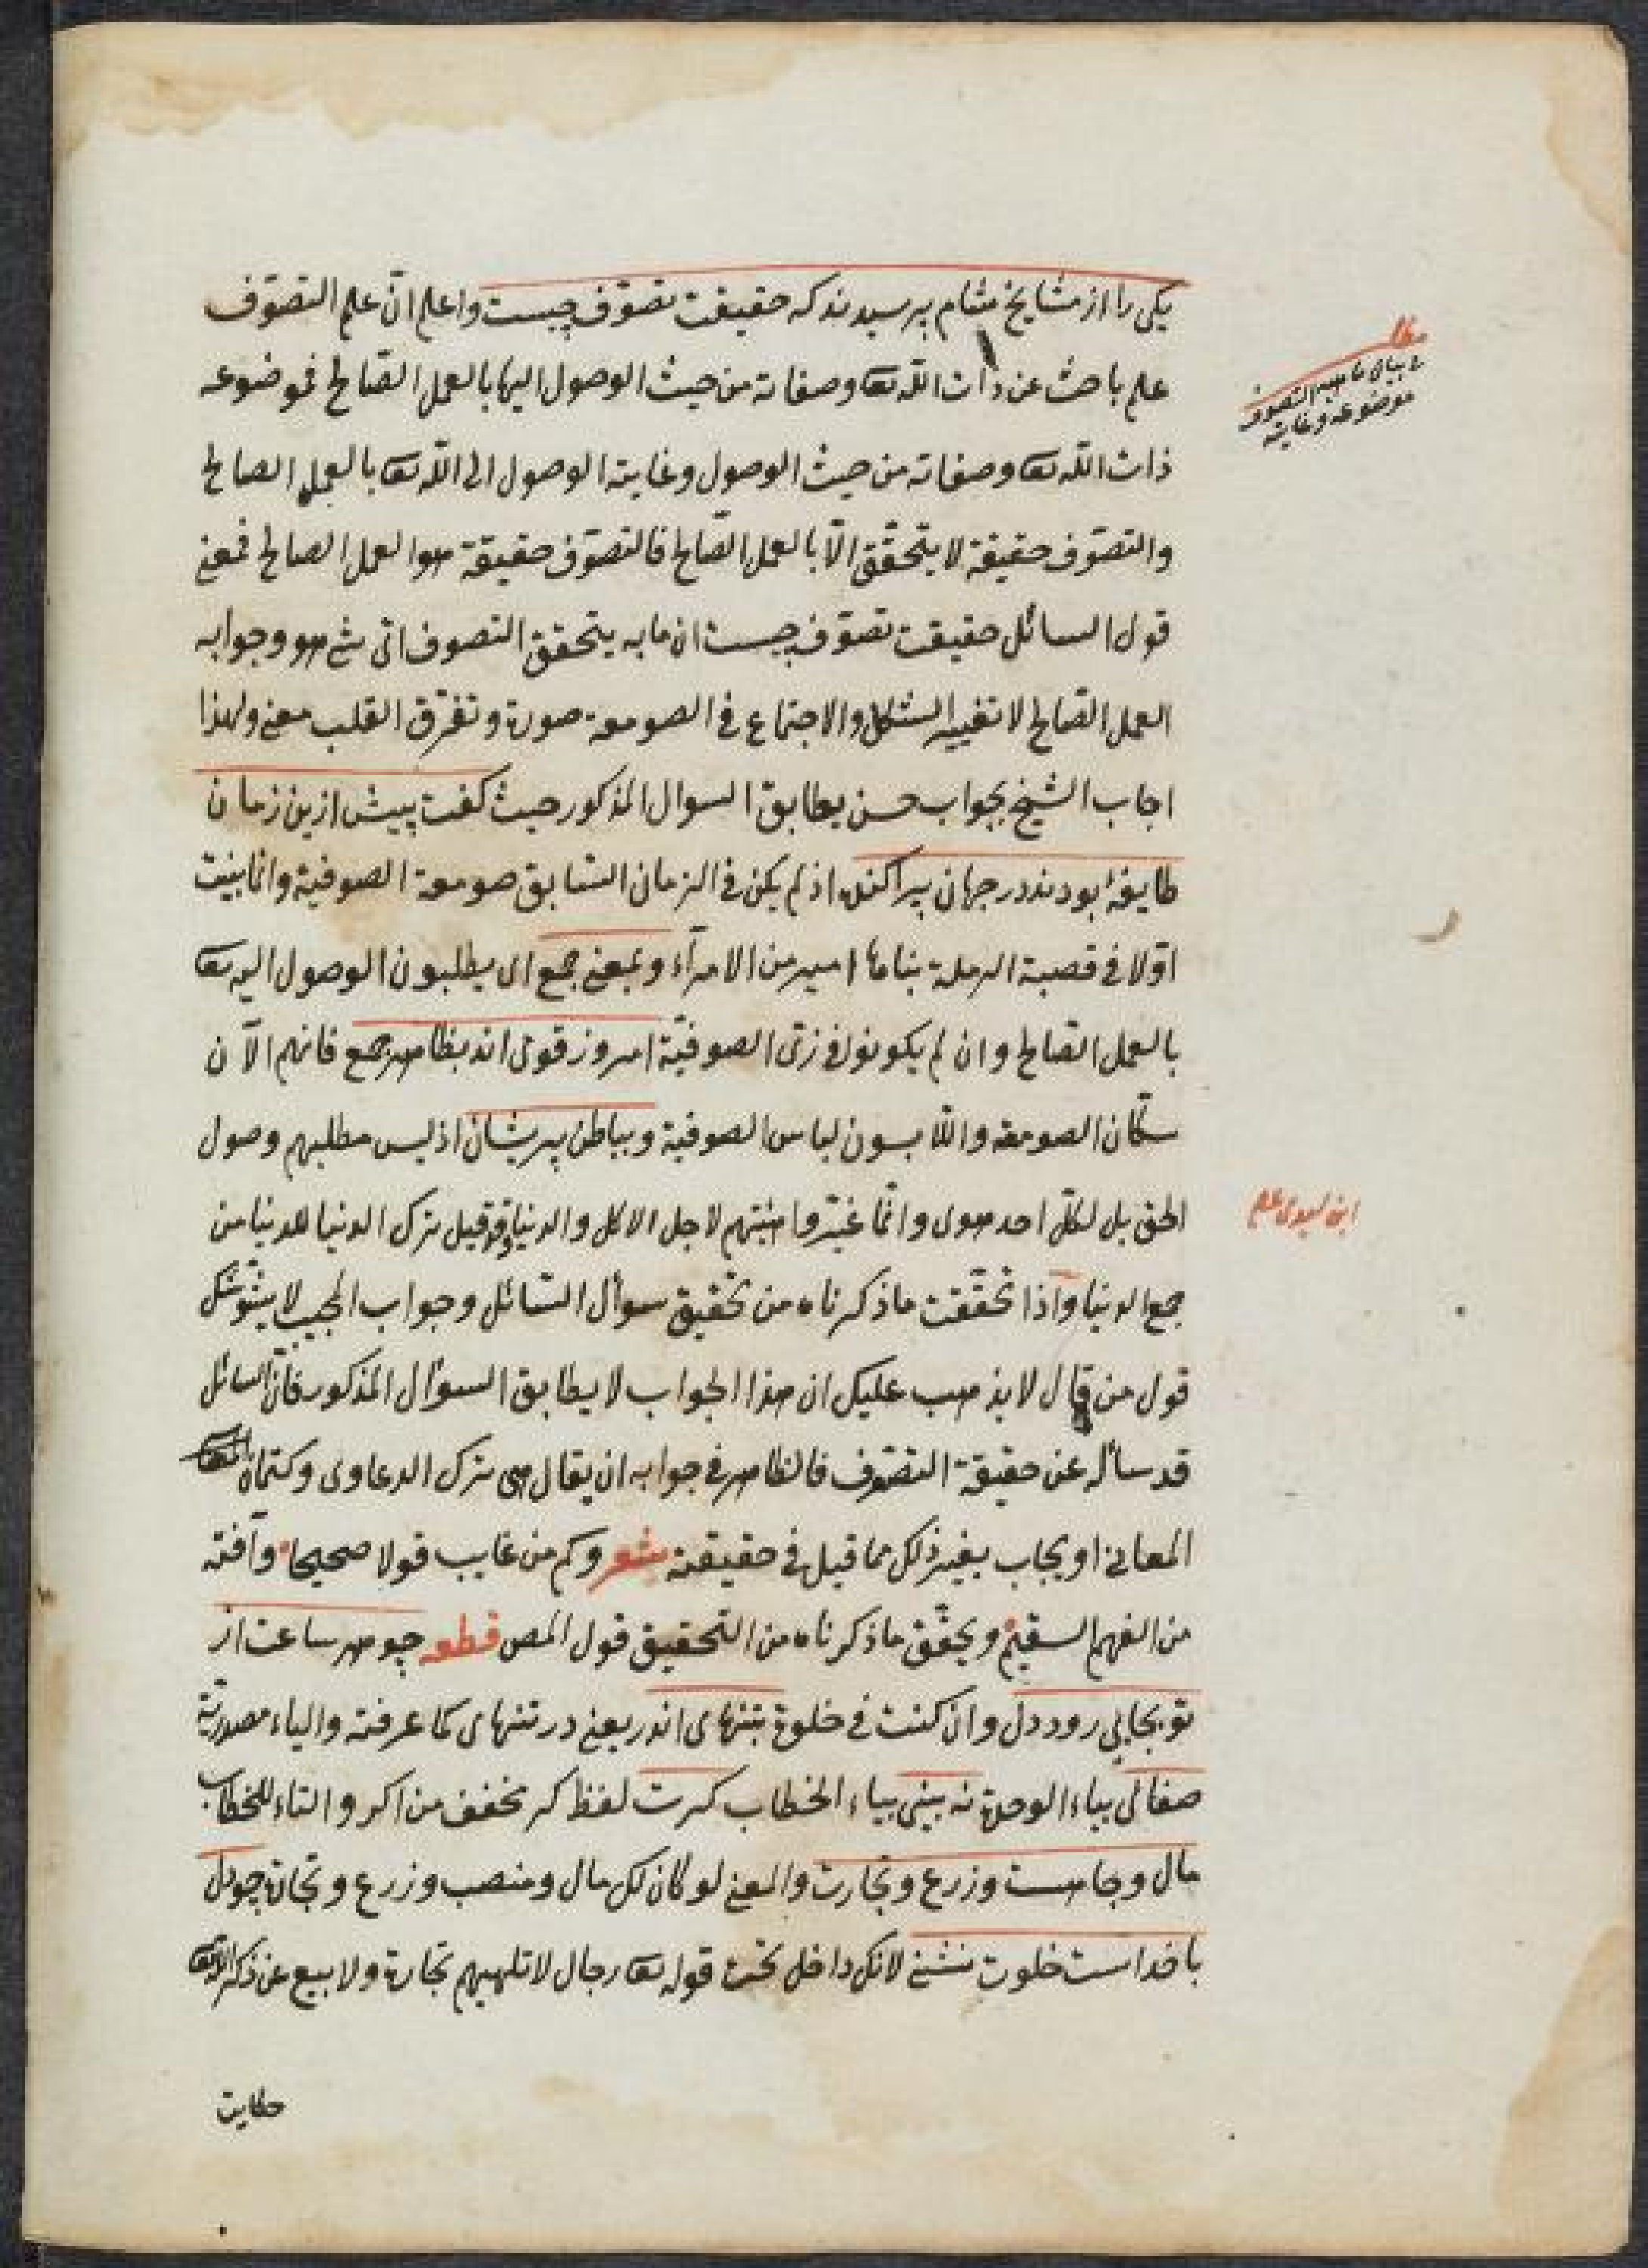 یکی را از مشایخ شام پرسیدند که حقیقت تصوّف چیست واعلم انّ علم التصوّف
علم باحث عن ذات اللّه تعا وصفاته من حيث الوصول اليها بالعمل الصّالح فموضوعه
ذات اللّه تعا وصفاته من حيث الوصول وغايته الوصول الى اللّه تعا بالعمل الصالح
والتصوّف حقيقة لا يتحقّق الّا بالعمل الصّالح فالتصوّف حقيقة هو العمل الصالح فمعنى
قول السائل حقیقت تصوّف چیست ان ما به يتحقق التصوف اىّ شئ هو وجوابه
العمل الصّالح لا تغيير الشكل والاجتماع فى الصومعة صورة وتفرّق القلب معنى ولهذا
اجاب الشيخ بجواب حسن يطابق السوال المذكور حيث كفت پیش ازین زمان
طایفهٔ بودند در جهان پراکنده اذ لم يكن فى الزمان السّابق صومعة الصوفيّة وانّما بنيت
اوّلا فى قصبة الرملة بناها امير من الامرآء وبمعنى جمع اى يطلبون الوصول اليه تعا
بالعمل الصّالح وان لم يكونوا فى زىّ الصوفيّة امروز قومی اند بظاهر جمع فانهم الآن
سكّان الصومعه واللّابسون لباس الصوفية وبباطن پریشان اذ ليس مطلبهم وصول
الحق بل لكلّ احد هوى وانّما غيّروا هيئتهم لاجل الاكل والدنيا وقد قيل ترك الدنيا للدنيا من
جمع الدنيا واذا تحقّقت ما ذكرناه من تحقيق سوأل السّائل وجواب المجيب لا يشوّشك
قول من قال لا يذهب عليك ان هذا الجواب لا يطابق السوأل المذكور فانّ السائل
قد سأله عن حقيقة التصوّف فالظاهر فى جوابه ان يقال هى ترك الدعاوى وكتمان
المعانى او يجاب بغير ذلك مما قيل فى حقيقته شعر وكم من غايب قولا صحيحا وآفته
من الفهم السقيم ويحقّق ما ذكرناه من التحقيق قول المص قطعه چو هر ساعت از
تو بجایی رود دل وان كنت فى خلوة بتنهایی اندر يعنى در تنهایی كما عرفته والياء مصدريّة
صفائی بياء الوحدة نه بینی بياء الخطاب کرت لفظ كر مخفف من اكر والتاء للخطاب
مال وجاهست وزرع وتجارت والمعنى لو كان لك مال ومنصب وزرع وتجارة چو دل
با خداست خلوت نشینی لانك داخل تحت قوله تعا رجال لا تلهيهم تجارة ولا بيع عن ذكر اللّه
حكايت
مطلب
بيان ماهية التصوف
موضوعه وغايته